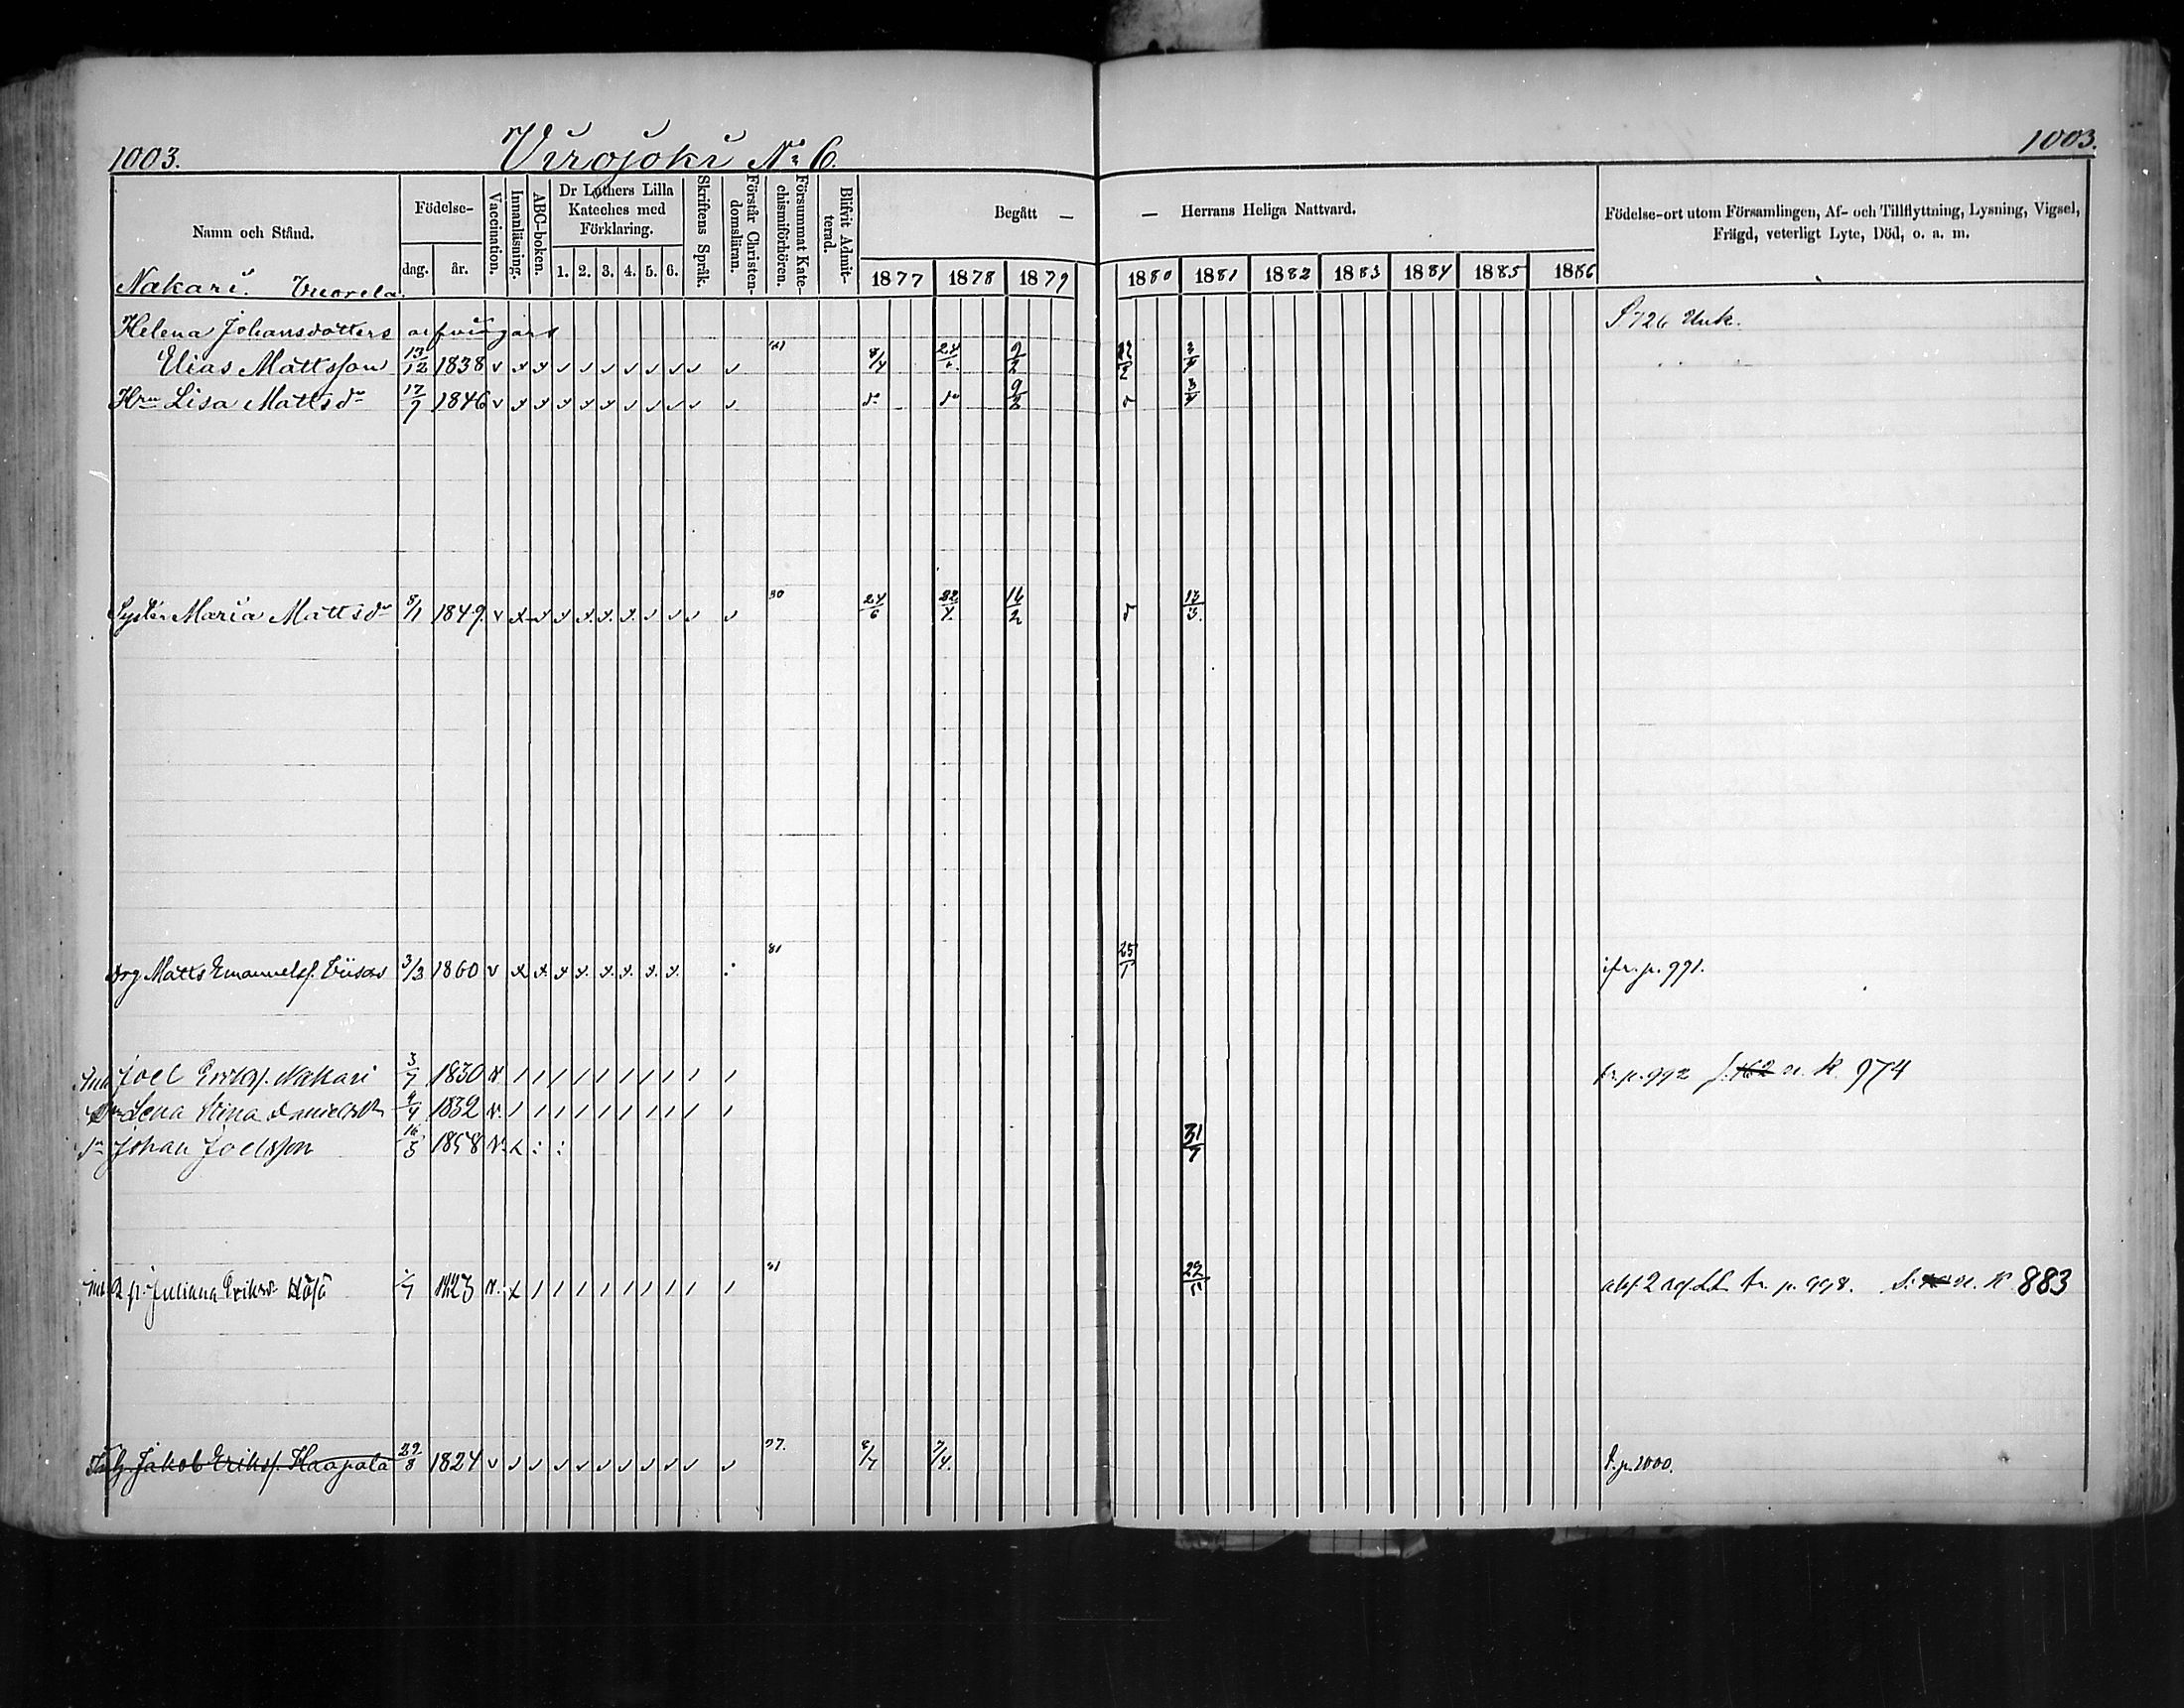 1003. Virojoki No 6. 1003.
Namn och Stånd. Födelse- dag. år. Vaccination. Innanläsning. ABC-boken. Dr Luthers Lilla Kateches med Förklaring. 1. 2. 3. 4. 5. 6. Skriftens Språk. Förstår Christendomsläran. Försummat Katechismiförhören. Blifvit Admitterad. Begått — — Herrans Heliga Nattvard. 1877 1878 1879 1880 1881 1882 1883 1884 1885 1886 Födelse-ort utom Församlingen, Af- och Tillflyttning, Lysning, Vigsel, Frägd, veterligt Lyte, Död, o. a. m.
Nakari. Vuorela.
Helena Johansdotters arfvingars S 726 Utsk.
Elias Mattsson 13/12 1838 v x x v v v v v v v v 8/4 24/6 9/2 22/2 3/4
Hru Lisa Mattsdr 17/7 1846 v x x x x x v v v v v do do 9/2 d 3/4
Syster Maria Mattsdr 8/1 1849 v x x x x x x v v v v 80 24/6 22/4 16/2 d 13/3
Drg Matts Emanuelss. Viisas 3/3 1860 v x x x x x x x x 81 25/1 ifr. p. 991.
Joel Erikss. Nakari 3/7 1830 v / / / / / / / / / / fr. p. 992 974
Lena Stina Danielsdr 4/4 1832 v / / / / / / / / / /
Sn Johan Joelsson 16/5 1858 v x : : 31/7
Juliana Eriksdr Höfö 1823 v x / / / / / / / / / 81 29/5 fr. p. 998. 883
Jakob Erikss. Haapala 29/8 1824 v v v v v v v v v v v 77. 8/7 7/4 S. p. 1000.